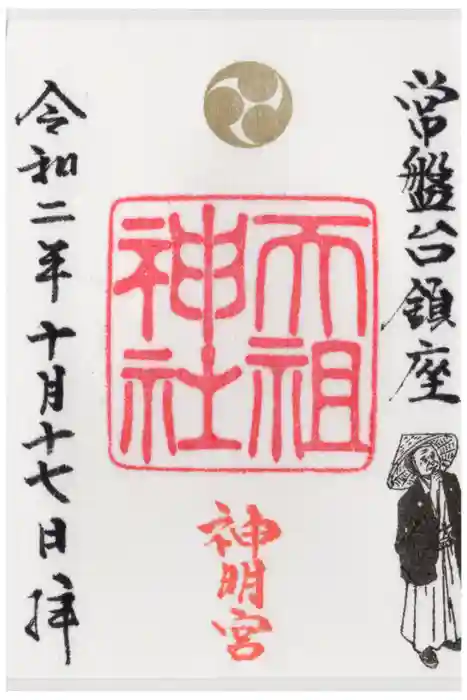 常盤台鎮座
天祖
神社
神明宮
令和二年十月十七日拝